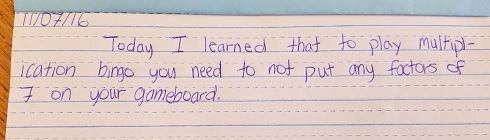 11/07/16
Today I learned that to play multipl-
ication bingo you need to not put any factors of
7 on your gameboard.